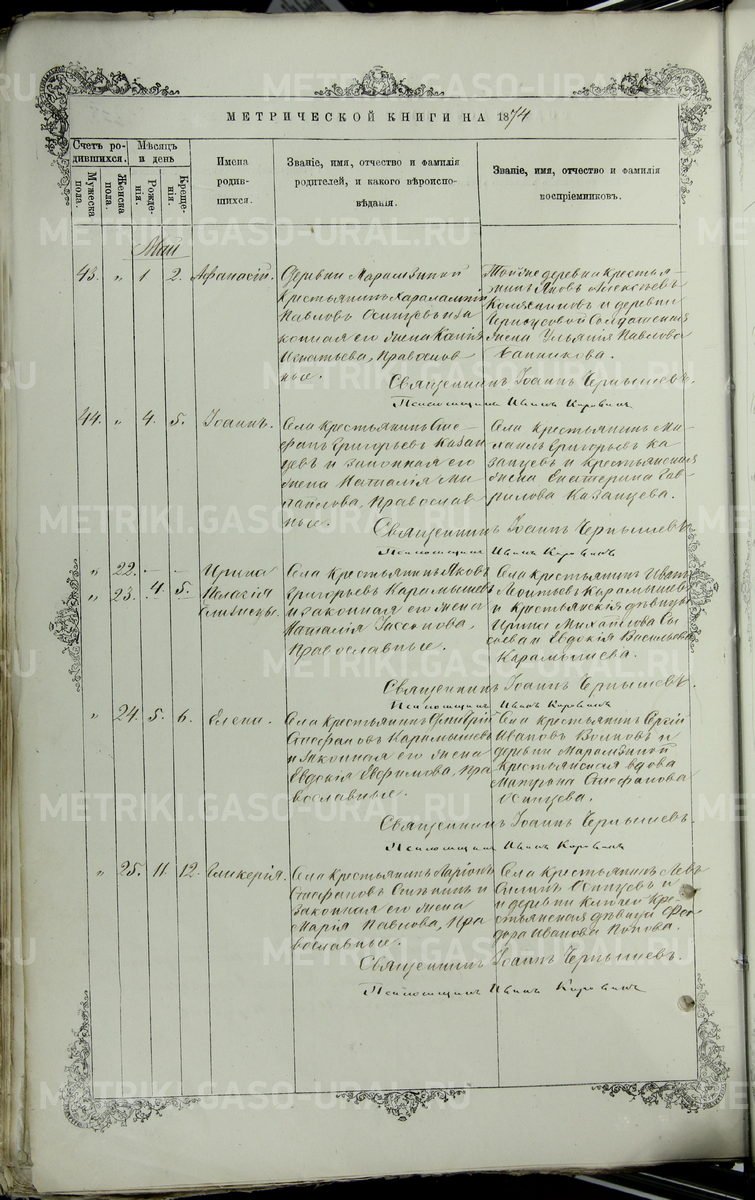 МЕТРИЧЕСКОЙ КНИГИ НА 1874
Счетъ ро-
дившихся.
Мѣсяцъ
и день
Мужеска
пола.
Женска
пола.
Рожде-
нія.
Креще-
нія.
Имена
родив-
шихся.
Званіе, имя, отчество и фамилія
родителей, и какого вѣроиспо-
вѣданія.
Званіе, имя, отчество и фамилія
воспріемниковъ.
Май
43. „ 1 2. Афанасій.
Деревни
Крестьянинъ Харалампій
Павловъ Осинцевъ и за
конная его жена Ксенія
Игнатьева, Православ-
ные.
Тойже деревни крестья-
нинъ Яковъ Алексѣевъ
и деревни
Солдатская
жена Ульянія Павлова
Банникова.
Священникъ Іоаннъ Чернышевъ.
Псаломщикъ Иванъ Коровинъ
44. „ 4. 5. Іоаннъ.
Села крестьянинъ Сте-
фанъ Григорьевъ Казан
цевъ и законная его
жена Наталія Ми-
хайлова, Православ-
ные.
Села крестьянинъ Ми-
хаилъ Григорьевъ Ка-
занцевъ и крестьянская
жена Екатерина Гав-
рилова Казанцева.
Священникъ Іоаннъ Чернышевъ
Псаломщикъ Иванъ Коровинъ
„ 22. — — Ирина
„ 23. 4. 5. Пелагія
близнецы.
Села крестьянинъ Яковъ
Григорьевъ Карамышевъ
и законная его жена
Наталія
Православные.
Села крестьянинъ Иванъ
Леонтьевъ Карамышевъ
и крестьянскія дѣвицы
Ирина Михайлова Сы
соева и Евдокія Васильева
Карамышева.
Священникъ Іоаннъ Чернышевъ.
Псаломщикъ Иванъ Коровинъ
„ 24. 5. 6. Елена.
Села крестьянинъ Дмитрій
Стефановъ Карамышевъ
и законная его жена
Евдокія Евфимова, Пра
вославные.
Села крестьянинъ Сергій
Ивановъ Волковъ и
деревни
крестьянская вдова
Матрона Стефанова
Осинцева.
Священникъ Іоаннъ Чернышевъ.
Псаломщикъ Иванъ Коровинъ
„ 25. 11. 12. Гликерія.
Села крестьянинъ Ларіонъ
Стефановъ и
законная его жена
Марія Павлова, Пра
вославные.
Села крестьянинъ Левъ
Осинцевъ и
и деревни Ключей кре-
стьянская дѣвица Ѳео-
дора Иванова Попова.
Священникъ Іоаннъ Чернышевъ.
Псаломщикъ Иванъ Коровинъ
METRIKI.GASO-URAL.RU